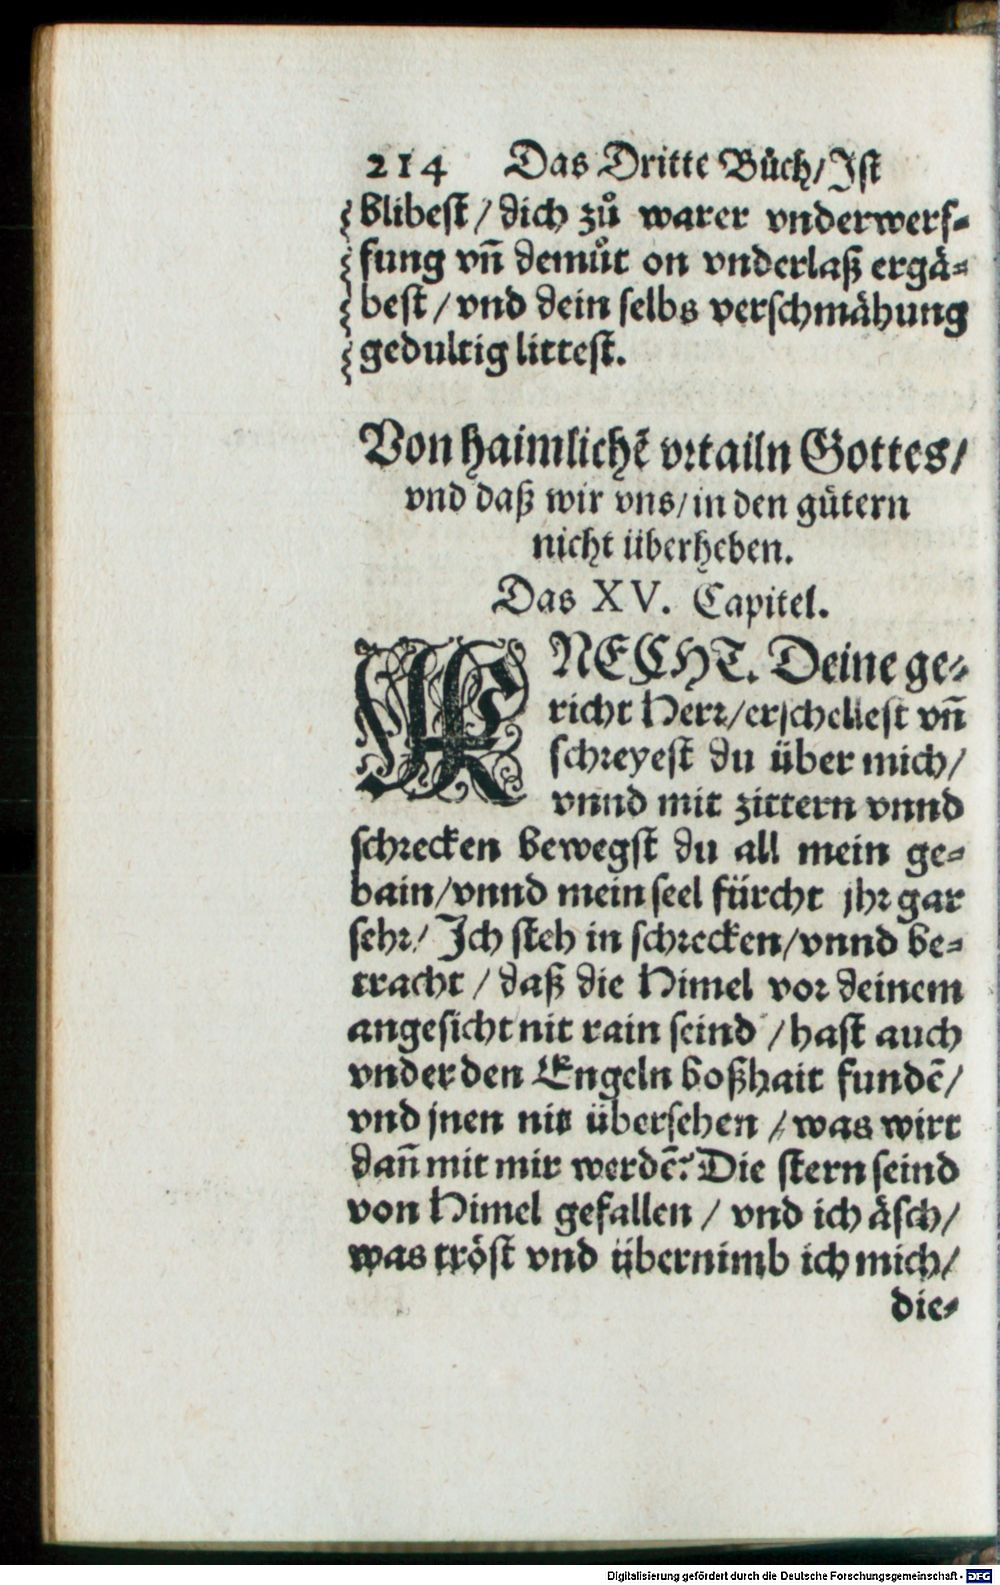 214 Das Dritte Bůch/Ist
blibest / dich zů warer vnderwerf-
fung vñ demůt on vnderlaß ergä-
best / vnd dein selbs verschmähung
gedultig littest.
Von haimlichē vrtailn Gottes/
vnd daß wir vns/in den gütern
nicht überheben.
Das XV. Capitel.
KNECHT. Deine ge-
richt Herr/erschellest vñ
schreyest du über mich/
vnnd mit zittern vnnd
schrecken bewegst du all mein ge-
bain/vnnd mein seel fürcht jhr gar
sehr/ Ich steh in schrecken/vnnd be-
tracht / daß die Himel vor deinem
angesicht nit rain seind / hast auch
vnder den Engeln boßhait fundē/
vnd jnen nit übersehen / was wirt
dañ mit mir werdē? Die stern seind
von Himel gefallen / vnd ich äsch/
was tröst vnd übernimb ich mich/
die-
Digitalisierung gefördert durch die Deutsche Forschungsgemeinschaft - DFG